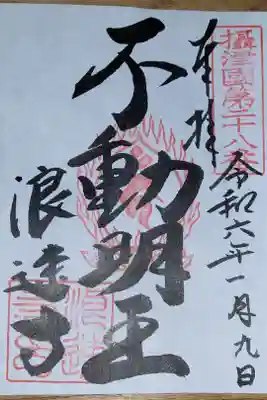 奉拝
攝津國第二十八番
令和六年一月九日
不動明王
浪速寺